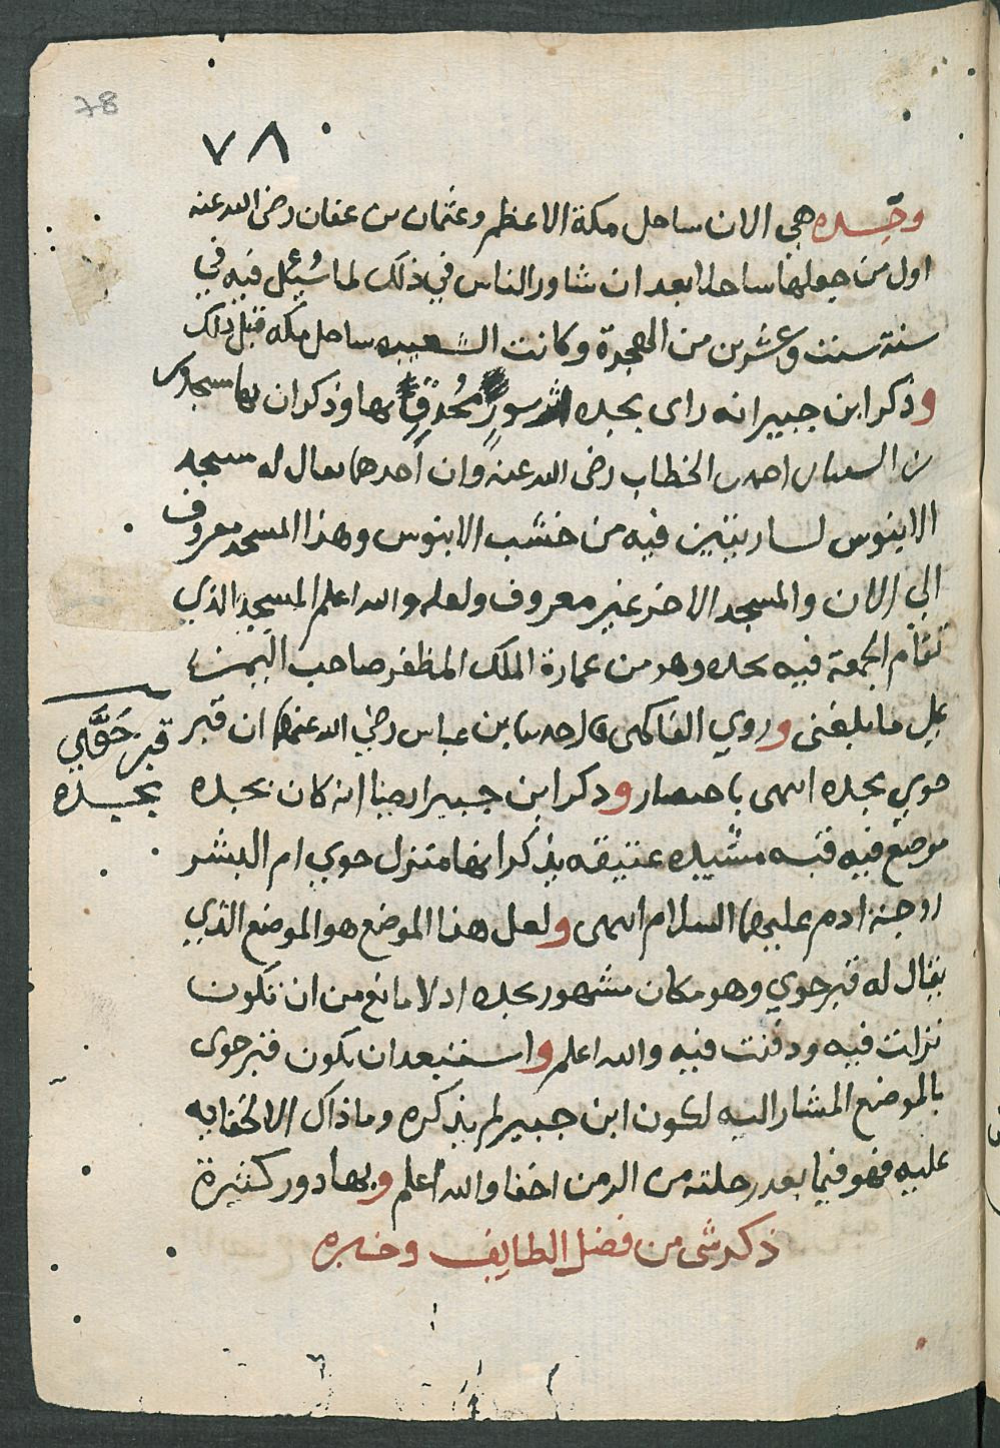 78
٧٨
وجده هي الان ساحل مكة الاعظم وعثمان بن عفان رضى الله عنه
اول من جعلها ساحلا بعد ان شاور الناس في ذلك لما سُئِل فيه في
سنة ست وعشرين من الهجرة وكانت الشعيبه ساحل مكه قبل ذلك
وذكر ابن جبير انه راى بجده سورٍ مُحْدِقٍ بها وذكر ان بها مسجدين
بن الخطاب رضى الله عنه وان احدهما يقال له مسجد
الابنوس لساريتين فيه من خشب الابنوس وهذا المسجد معروف
الي الان والمسجد الاخر غير معروف ولعله والله اعلم المسجد الذي
تقام الجمعة فيه بجده وهو من عمارة الملك المظفر صاحب اليمن
علي ما بلغنى وروي الفاكهى عن ابن عباس رضي الله عنهما ان قبر
حوي بجده انتهى باختصار وذكر ابن جبير ايضا انه كان بجده
موضع فيه قبه مشيده عتيقه يذكر انها منزل حوي ام البشر
زوجة ادم عليهما السلام انتهى ولعل هذا الموضع هو الموضع الذي
يقال له قبر حوي وهو مكان مشهور بجده اذ لا مانع من ان تكون
نزلت فيه ودفنت فيه والله اعلم واستبعد ان يكون قبر حوى
بالموضع المشار اليه لكون ابن جبير لم يذكره وما ذاك الا لخفايه
عليه فهو فيما بعد رحلته من الزمن اخفا والله اعلم وبها دور كثيرة
ذكر شى من فضل الطايف وخبره
قبر حَوَّي
بجده